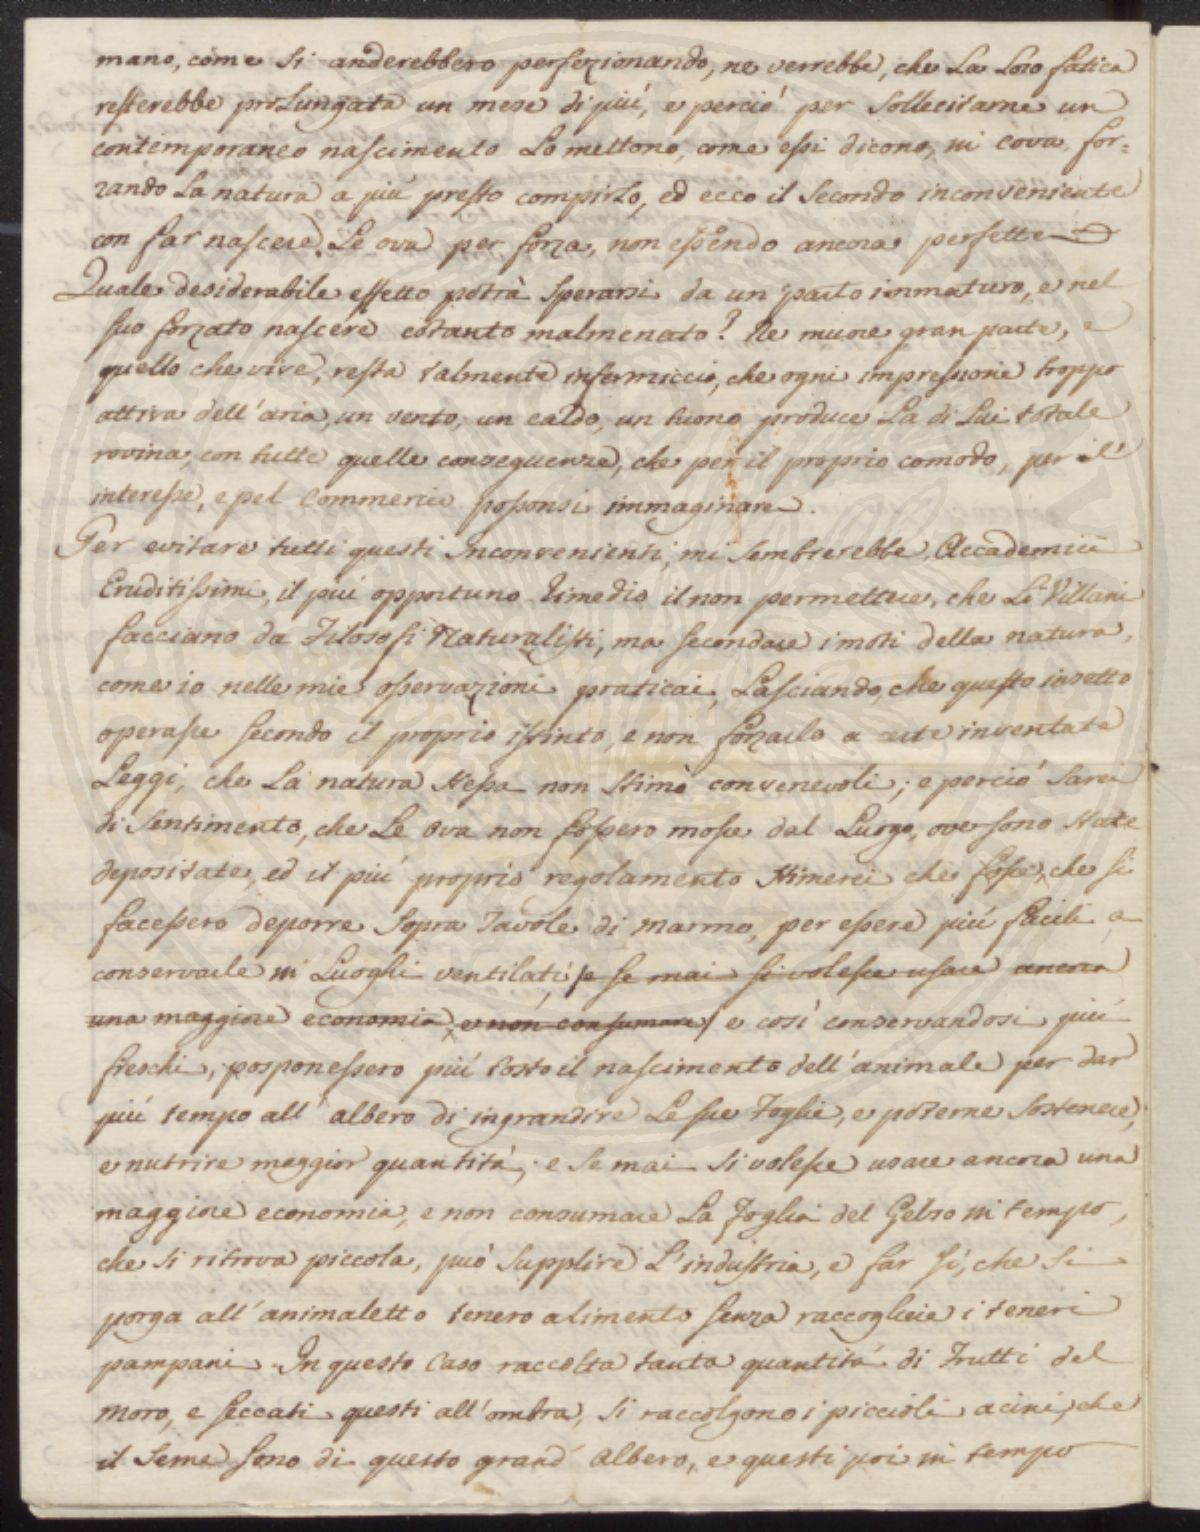 mano, come si anderebbero perfezionando, ne verrebbe, che La Loro fatica
resterebbe proLungata un mese di piú, e perció per sollecitarne un
contemporaneo nascimento Lo mettono, come essi dicono, in cova, for=
zando La natura a piú presto compirLo, ed ecco il secondo inconveniente
con far nascere Le ova per forza, non essendo ancora perfette
Quale desiderabile effetto potrà sperarsi da un parto immaturo, e nel
suo forzato nascere cotanto malmenato? Ne muore gran parte, e
quello che vive, resta talmente infermiccio, che ogni impressione troppo
attiva dell'aria, un vento, un caldo, un tuono produce La di Lui totale
rovina, con tutte quelle conseguenze, che per il proprio comodo, per l'
interesse, e pel Commercio possonsi immaginare.
Per evitare tutti questi Inconvenienti, mi sembrerebbe, Accademici
Eruditissimi, il piú opportuno Rimedio il non permettere, che Li Villani
facciano da Filosofi Naturalisti, ma secondare i moti della natura,
come io nelle mie osservazioni praticai, Lasciando, che questo insetto
operasse secondo il proprio istinto, e non forzarlo a arte inventate
Leggi, che La natura stessa non stimò convenevoli; e perció sarei
di sentimento, che Le ova non fossero mosse dal Luogo, ove sono state
depositate, ed il piú proprio regolamento stimerei che fosse, che si
facessero deporre sopra Tavole di marmo, per essere piú facili a
conservarle in Luoghi ventilati, /e se mai si volesse usare ancora
una maggiore economia, e non consumare/ e cosí conservandosi piú
freschi, posponessero piú tosto il nascimento dell'animale per dar
piú tempo all'albero di ingrandire Le sue Foglie, e poterne sostenere,
e nutrire maggior quantità; e se mai si volesse usare ancora una
maggiore economia, e non consumare La foglia del Gelso in tempo,
che si ritrova piccola, puó supplire L'industria, e far sí, che si
porga all'animaletto tenero alimento senza raccogliere i teneri
pampani. In questo Caso raccolta tanta quantitá di Frutti del
Moro, e seccati questi all'ombra, si raccolgono i piccioli acini, che
il seme sono di questo grand'Albero, e questi poi in tempo